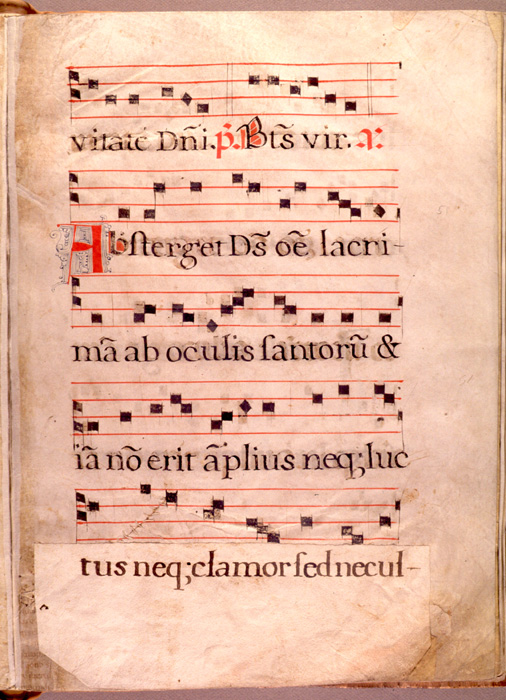 vitate Dñi. p̃. Bts̃ vir. a:
Absterget Ds̃ oẽ lacri-
mã ab oculis santorũ &
iã nõ erit ãplius neq; luc
tus neq; clamor sed necul-